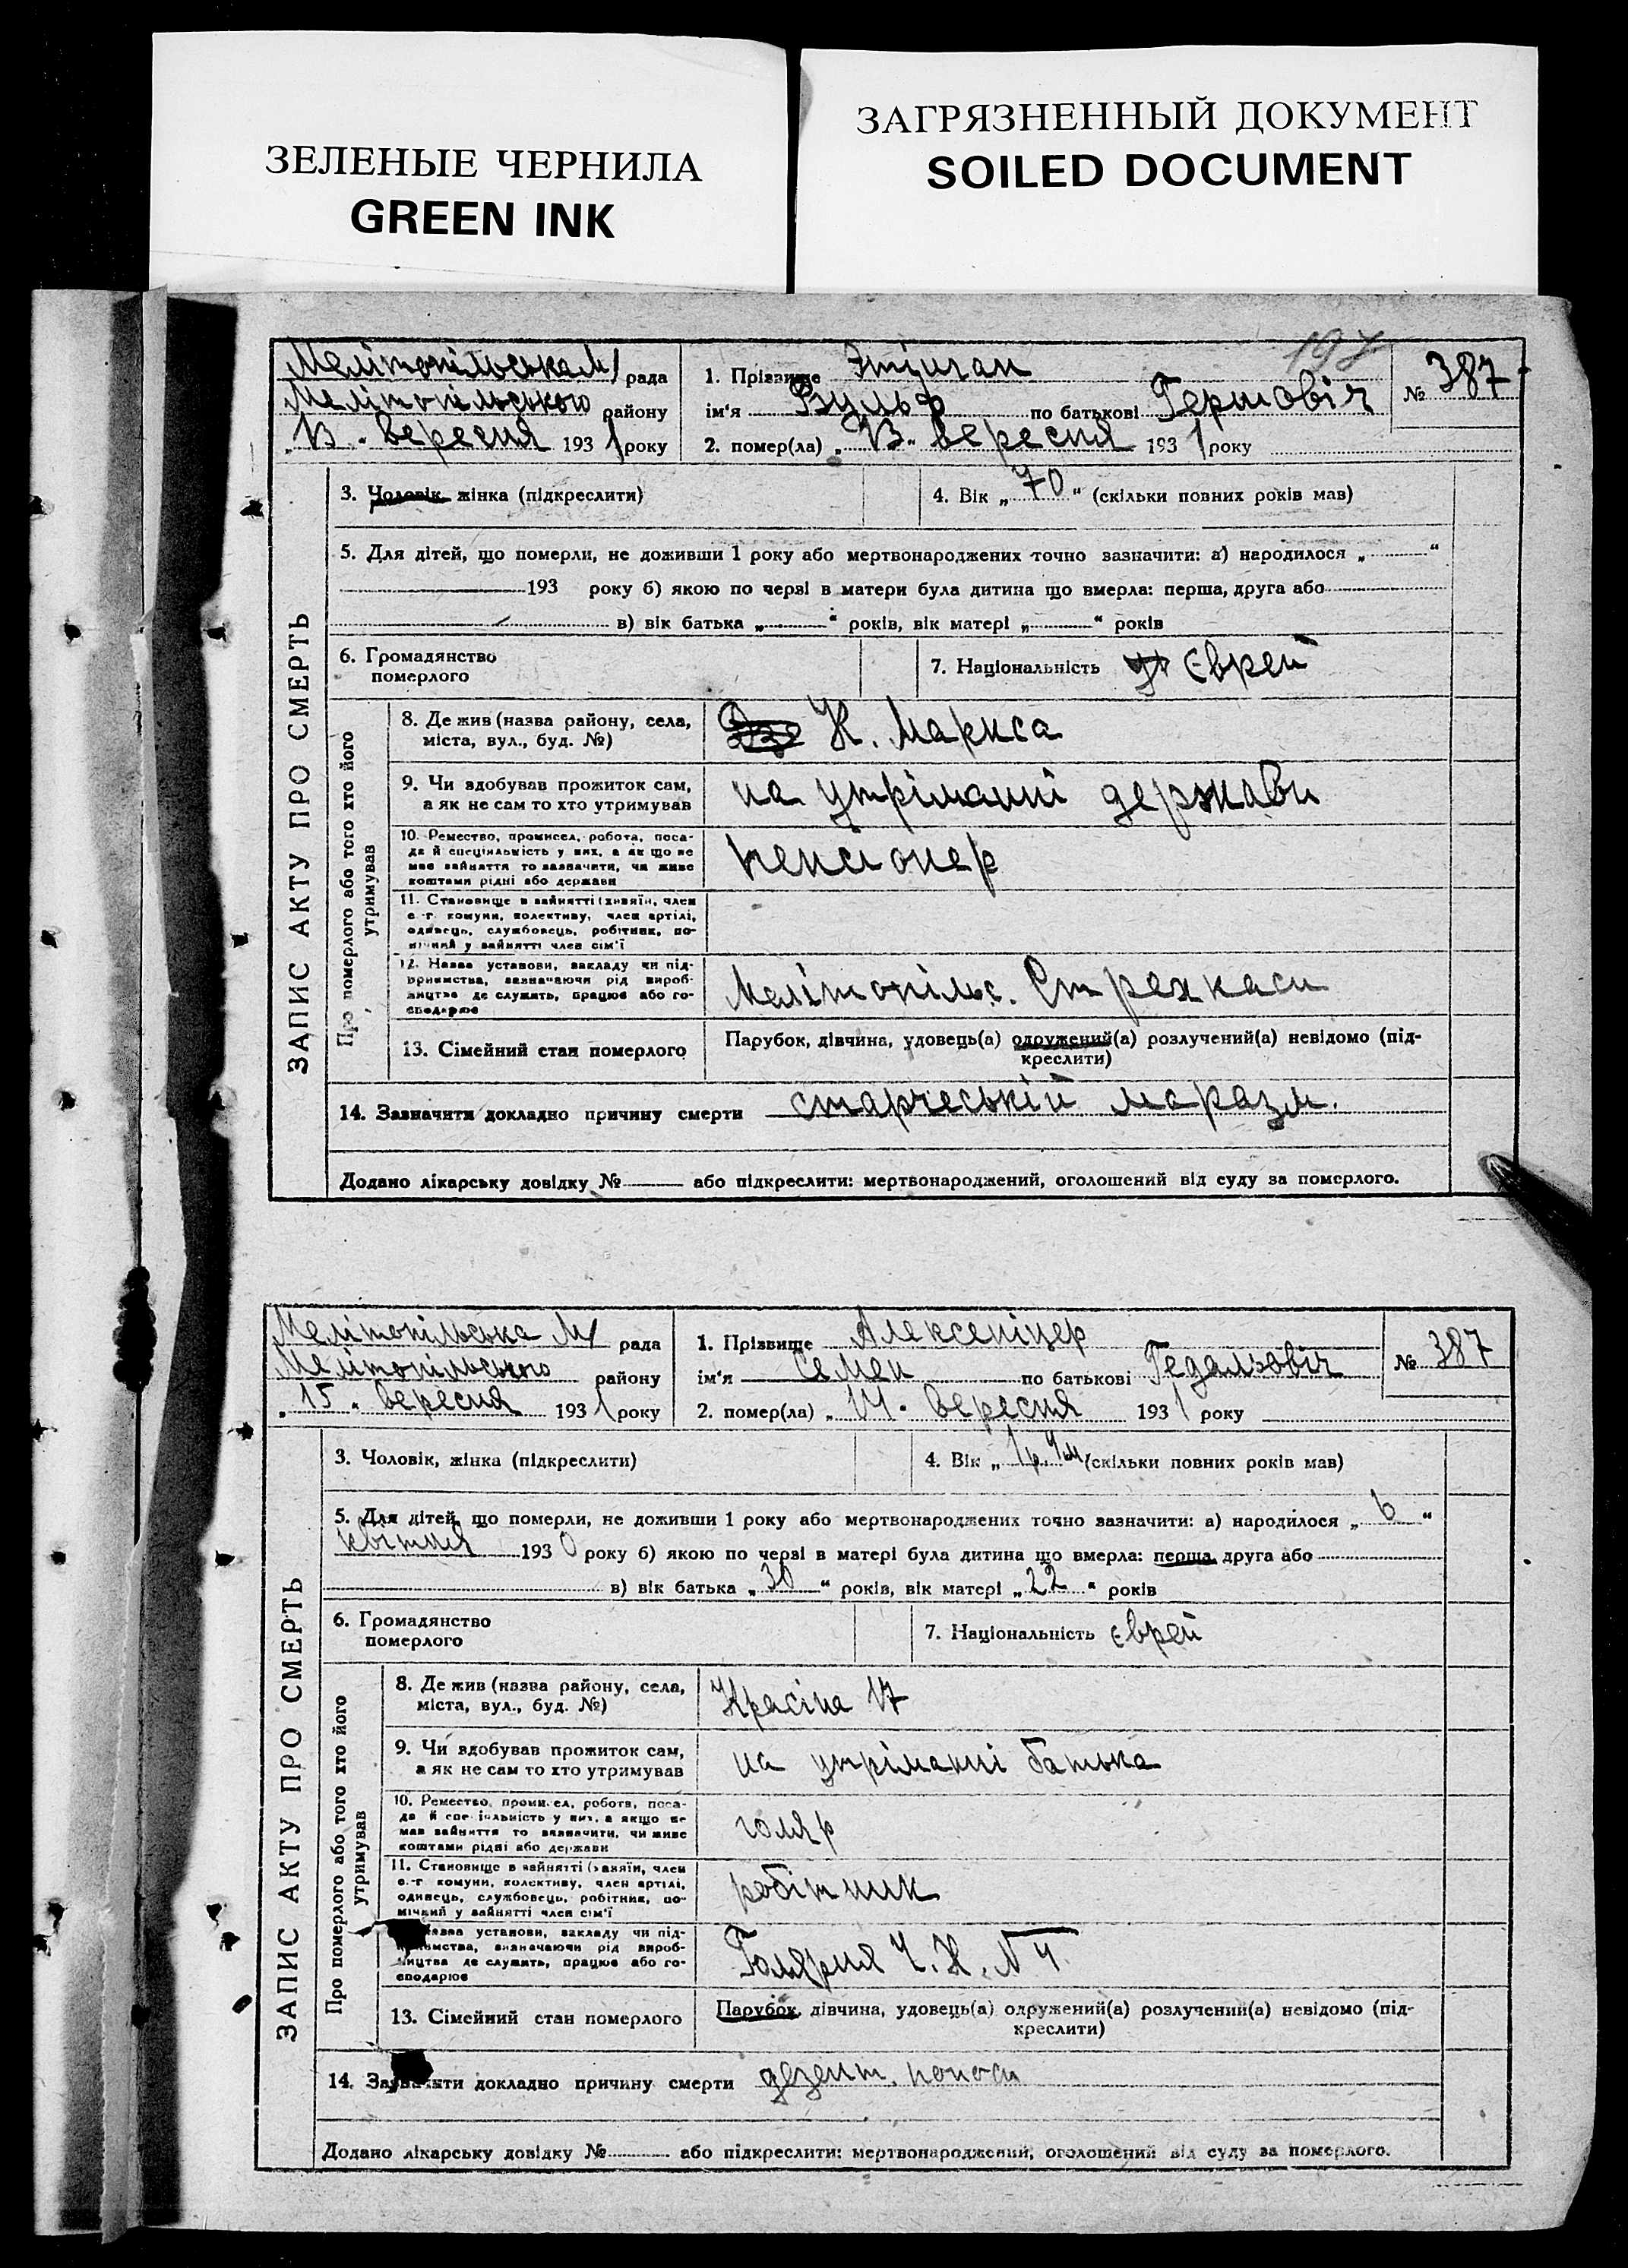 ЗЕЛЕНЫЕ ЧЕРНИЛА
GREEN INK
ЗАГРЯЗНЕННЫЙ ДОКУМЕНТ
SOILED DOCUMENT
197
Мелітопільська М/ рада
Мелітопільського району
„13“ вересня 1931 року
1. Прізвище
ім'я Вульф по батькові Гершовіч
2. помер(ла) „13“ вересня 1931 року
№ 387
ЗАПИС АКТУ ПРО СМЕРТЬ
3. Чоловік, жінка (підкреслити)
4. Вік „70“ (скільки повних років мав)
5. Для дітей, що померли, не доживши 1 року або мертвонароджених точно зазначити: а) народилося „ “
193 року б) якою по черзі в матери була дитина що вмерла: перша, друга або
в) вік батька „ “ років, вік матері „ “ років
6. Громадянство
померлого
7. Національність Єврей
Про померлого або того хто його
утримував
8. Де жив (назва району, села,
міста, вул., буд. №)
К. Маркса
9. Чи здобував прожиток сам,
а як не сам то хто утримував
на утріманні держави
10. Ремество, промисел, робота, поса-
да й спеціяльність у них, а якщо не
мав зайняття то зазначити, чи живе
коштами рідні або держави
пенсіонер
11. Становище в зайнятті (хазяїн, член
с.-г. комуни, колективу, член артілі,
одинець, службовець, робітник, по-
мічний у зайнятті член сім'ї
12. Назва установи, закладу чи під-
приємства, зазначаючи рід вироб-
ництва де служить, працює або го-
сподарює
Мелітопільс. Страхкаси
13. Сімейний стан померлого
Парубок, дівчина, удовець(а) одружений(а) розлучений(а) невідомо (під-
креслити)
14. Зазначити докладно причину смерти старческій маразм.
Додано лікарську довідку № або підкреслити: мертвонароджений, оголошений від суду за померлого.
Мелітопільська М/ рада
Мелітопільського району
„15“ вересня 1931 року
1. Прізвище Алексеніцер
ім'я Семен по батькові Гедальовіч
2. помер(ла) „14“ вересня 1931 року
№ 387
ЗАПИС АКТУ ПРО СМЕРТЬ
3. Чоловік, жінка (підкреслити)
4. Вік „1р. “ (скільки повних років мав)
5. Для дітей, що померли, не доживши 1 року або мертвонароджених точно зазначити: а) народилося „6“
квітня 1930 року б) якою по черзі в матері була дитина що вмерла: перша, друга або
в) вік батька „30“ років, вік матері „22“ років
6. Громадянство
померлого
7. Національність єврей
Про померлого або того хто його
утримував
8. Де жив (назва району, села,
міста, вул., буд. №)
Красіна 17
9. Чи здобував прожиток сам,
а як не сам то хто утримував
на утріманні батька
10. Ремество, промисел, робота, поса-
да й спеціяльність у них, а якщо не
мав зайняття то зазначити, чи живе
коштами рідні або держави
голяр
11. Становище в зайнятті (хазяїн, член
с.-г. комуни, колективу, член артілі,
одинець, службовець, робітник, по-
мічний у зайнятті член сім'ї
робітник
Назва установи, закладу чи під-
приємства, зазначаючи рід вироб-
ництва де служить, працює або го-
сподарює
Голярня Ч. Х. № 4.
13. Сімейний стан померлого
Парубок, дівчина, удовець(а) одружений(а) розлучений(а) невідомо (під-
креслити)
14. Зазначити докладно причину смерти дезент. поноси
Додано лікарську довідку № або підкреслити: мертвонароджений, оголошений від суду за померлого.